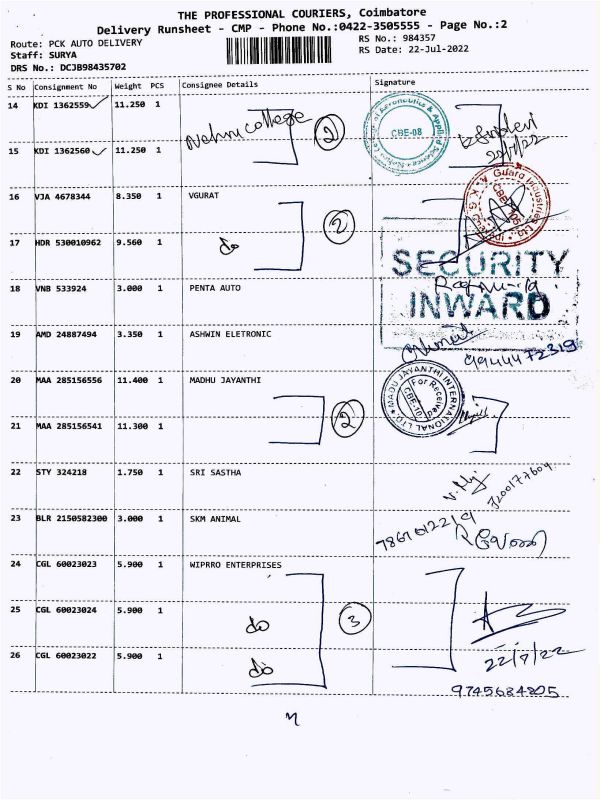 THE PROFESSIONAL COURIERS, Coimbatore
Delivery Runsheet - CMP - Phone No.:0422-3505555 - Page No.:2
Route: PCK AUTO DELIVERY RS No.: 984357
Staff: SURYA RS Date: 22-Jul-2022
DRS No.: DCJB98435702
S No Consignment No Weight PCS Consignee Details Signature
14 KDI 1362559 11.250 1
Nehru college 2
CBE-08
22/7/22
15 KDI 1362560 11.250 1
16 VJA 4678344 8.350 1 VGURAT
2
17 HDR 530010962 9.560 1 do
SECURITY
INWARD
18 VNB 533924 3.000 1 PENTA AUTO
19 AMD 24887494 3.350 1 ASHWIN ELETRONIC
9944472319
20 MAA 285156556 11.400 1 MADHU JAYANTHI
MADU JAYANTHI INTERNATIONAL LTD
For Received
CBE-10
2
21 MAA 285156541 11.300 1
22 STY 324218 1.750 1 SRI SASTHA
7200177604
23 BLR 2150582300 3.000 1 SKM ANIMAL
24 CGL 60023023 5.900 1 WIPRRO ENTERPRISES
25 CGL 60023024 5.900 1 do 3
26 CGL 60023022 5.900 1 do
22/7/22
9745684805